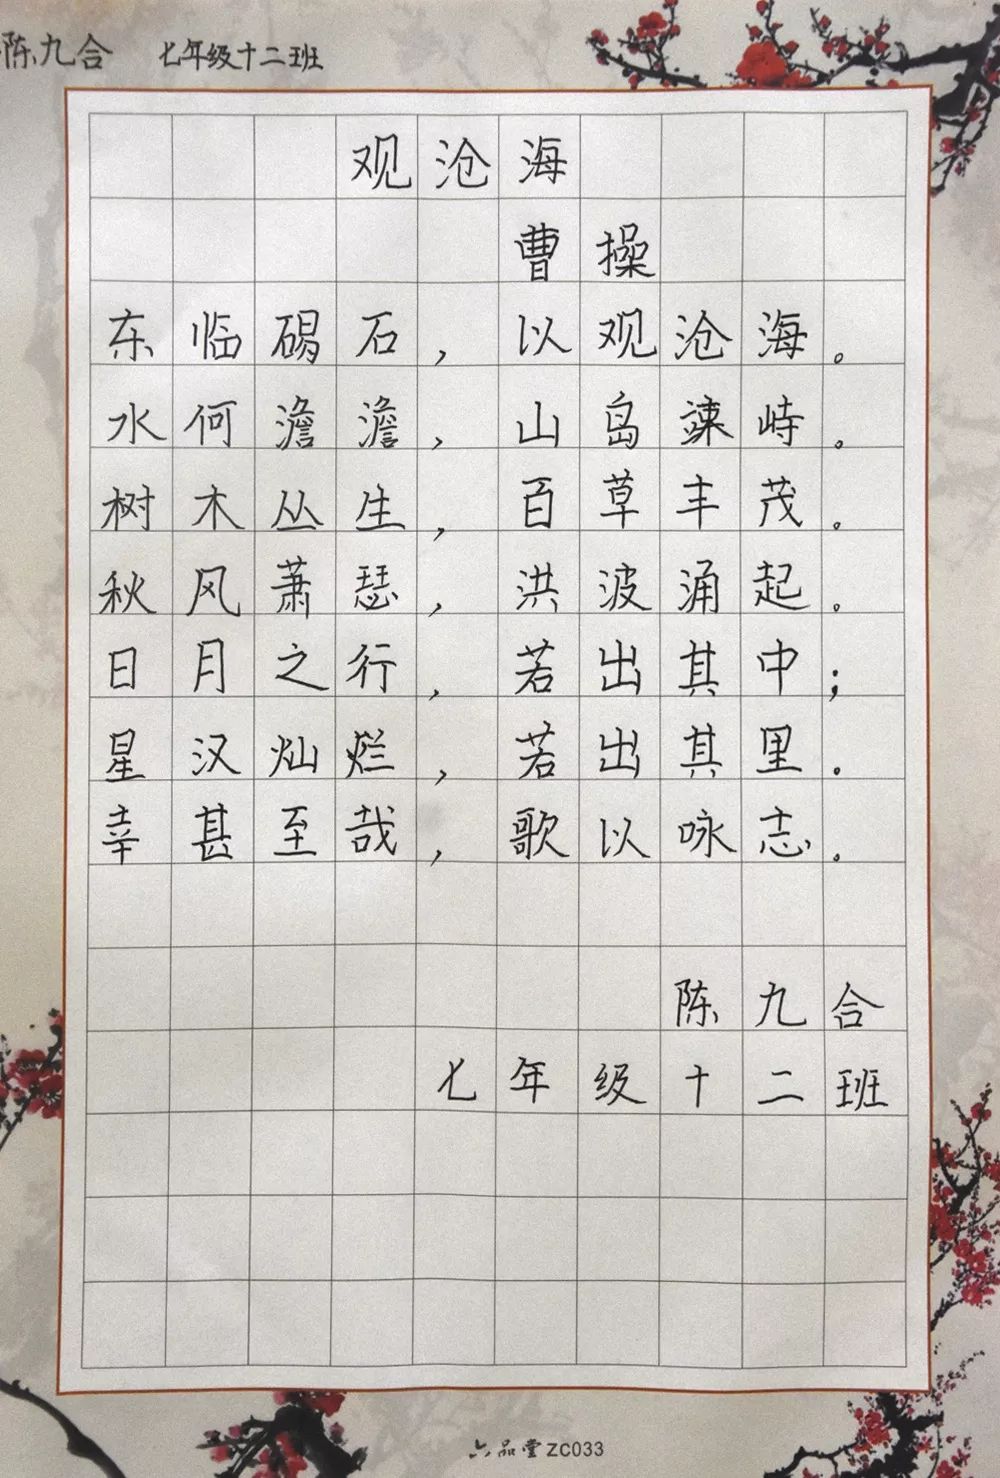 陈九合 七年级十二班
观沧海
曹操
东临碣石，以观沧海。
水何澹澹，山岛竦峙。
树木丛生，百草丰茂。
秋风萧瑟，洪波涌起。
日月之行，若出其中；
星汉灿烂，若出其里。
幸甚至哉，歌以咏志。
陈九合
七年级十二班
六品堂 ZC033